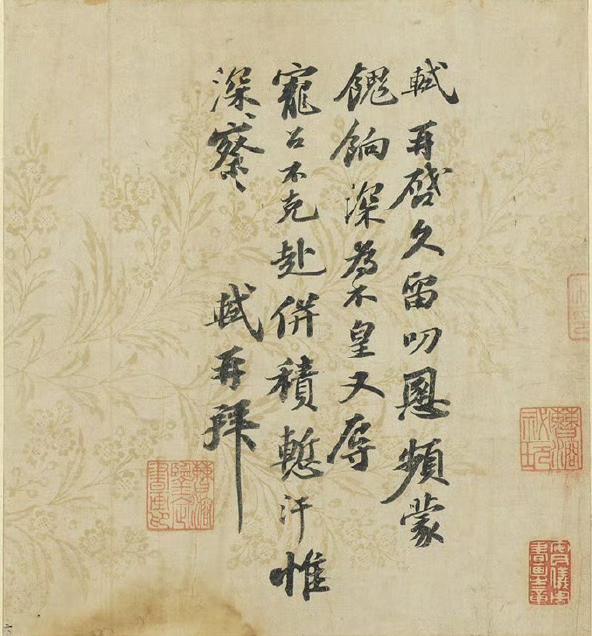 軾再啓久留叨恩頻蒙
餽餉深爲不皇又辱
寵召不克赴併積慙汗惟
深察
軾再拜